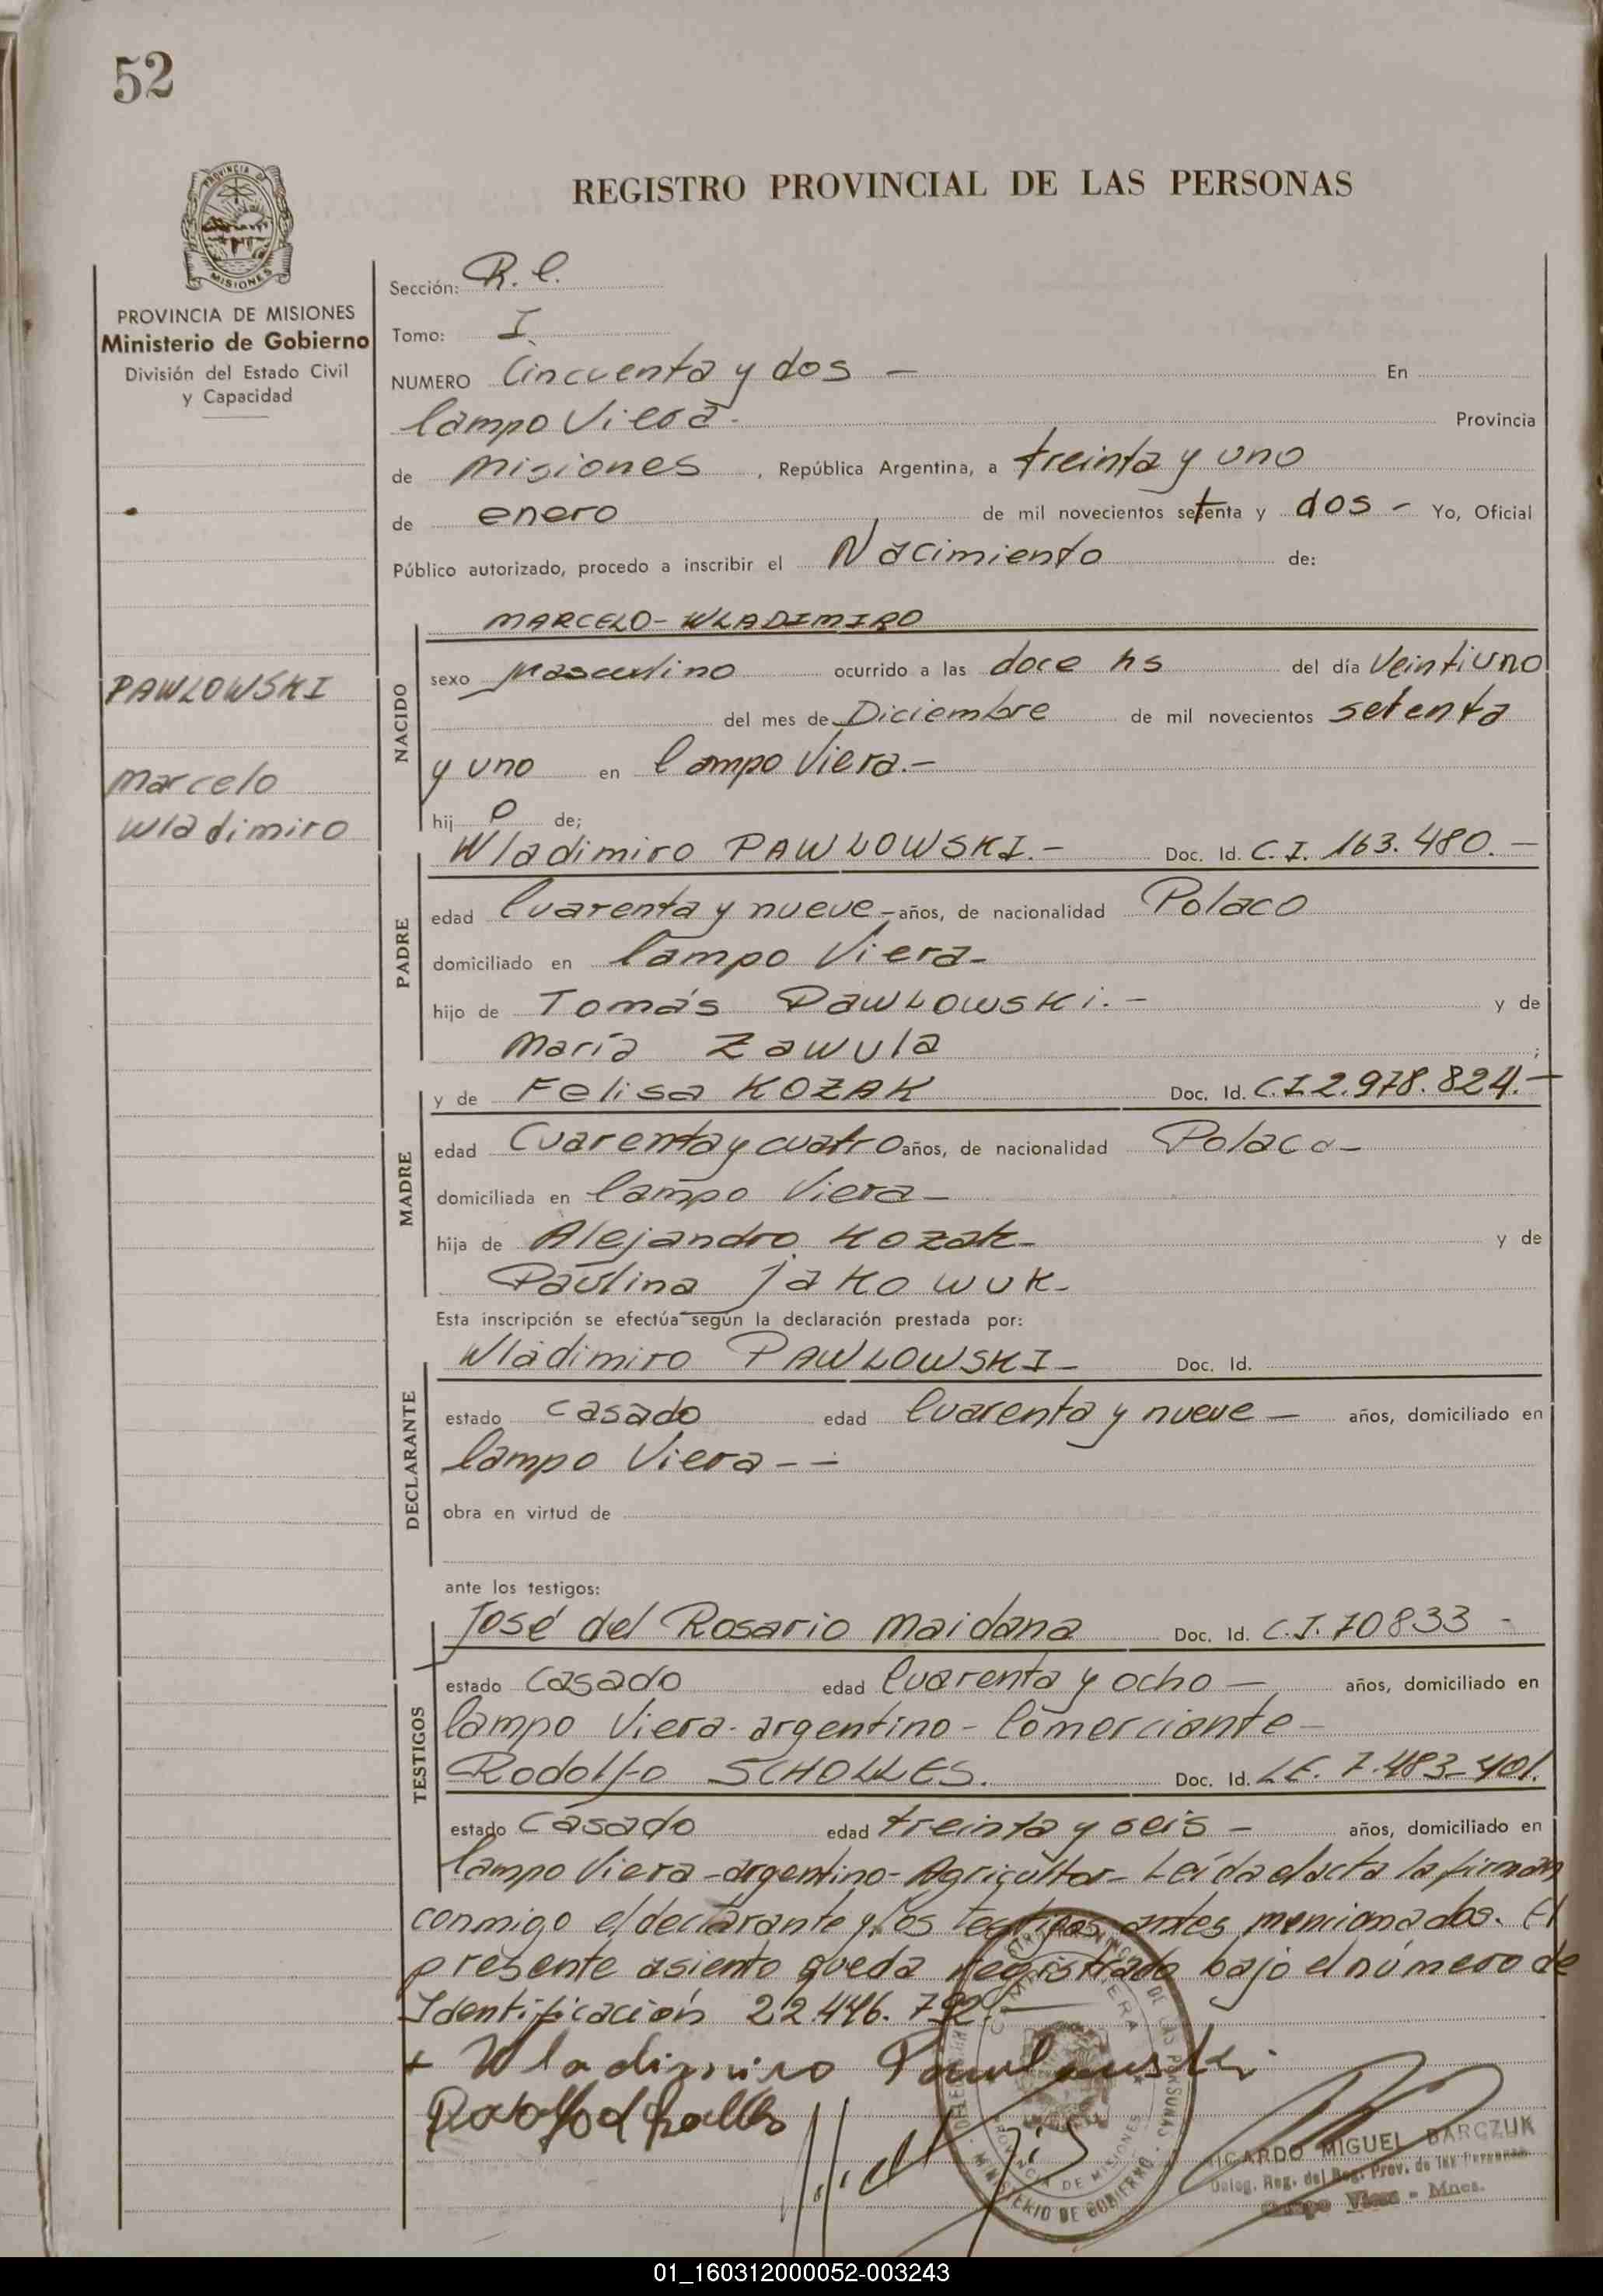 52
REGISTRO PROVINCIAL DE LAS PERSONAS
PROVINCIA DE MISIONES
Ministerio de Gobierno
División del Estado Civil
y Capacidad
PAWLOWSKI
Marcelo
Wladimiro
Sección: R. C.
Tomo: I
NUMERO Cincuenta y dos - En
Campo Viera. Provincia
de Misiones, República Argentina, a treinta y uno
de enero de mil novecientos setenta y dos - Yo, Oficial
Público autorizado, procedo a inscribir el Nacimiento de:
MARCELO - WLADIMIRO
NACIDO
sexo Masculino ocurrido a las doce hs del día Veintiuno
del mes de Diciembre de mil novecientos setenta
y uno en Campo Viera.-
hij o de;
Wladimiro PAWLOWSKI.- Doc. Id. C. I. 163.480.-
PADRE
edad Cuarenta y nueve - años, de nacionalidad Polaco
domiciliado en Campo Viera-
hijo de Tomás PAWLOWSKi.- y de
María Zawula ;
y de Felisa KOZAK Doc. Id. C.I 2.978.824.-
MADRE
edad Cuarenta y cuatro años, de nacionalidad Polaca-
domiciliada en Campo Viera-
hija de Alejandro Kozak- y de
Paulina Jakowuk-
Esta inscripción se efectúa según la declaración prestada por:
Wladimiro PAWLOWSKI- Doc. Id.
DECLARANTE
estado casado edad Cuarenta y nueve - años, domiciliado en
Campo Viera--
obra en virtud de
ante los testigos:
José del Rosario Maidana Doc. Id. C.I. 70833 -
TESTIGOS
estado Casado edad Cuarenta y ocho - años, domiciliado en
Campo Viera- argentino- Comerciante-
Rodolfo SCHOLLES. Doc. Id. LE. 7.483-401.
estado Casado edad treinta y seis - años, domiciliado en
Campo Viera-argentino- Agricultor- Leída el acta la firman
conmigo el declarante y los testigos antes mencionados. El
presente asiento queda registrado bajo el número de
Identificación 22.446.792.-
+ Wladimiro Pawlowski
RICARDO MIGUEL BARCZUK
Deleg. Reg. del Reg. Prov. de las Personas
Campo Viera - Mnes.
MINISTERIO DE GOBIERNO
PROVINCIA DE MISIONES
01_160312000052-003243